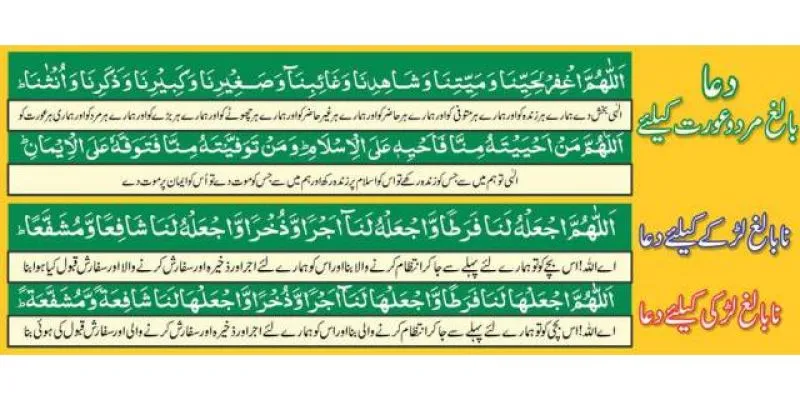 دعا
بالغ مرد و عورت کیلئے
اَللّٰهُمَّ اغْفِرْ لِحَيِّنَا وَمَيِّتِنَا وَشَاهِدِنَا وَغَائِبِنَا وَصَغِيْرِنَا وَكَبِيْرِنَا وَذَكَرِنَا وَاُنْثٰنَا ؕ
الٰہی بخش دے ہمارے ہر زندہ کو اور ہمارے ہر متوفی کو اور ہمارے ہر حاضر کو اور ہمارے ہر غیر حاضر کو اور ہمارے ہر چھوٹے کو اور ہمارے ہر بڑے کو اور ہمارے ہر مرد کو اور ہماری ہر عورت کو
اَللّٰهُمَّ مَنْ اَحْيَيْتَهٗ مِنَّا فَاَحْيِهٖ عَلَى الْاِسْلَامِ ؕ وَمَنْ تَوَفَّيْتَهٗ مِنَّا فَتَوَفَّهٗ عَلَى الْاِيْمَانِ ؕ
الٰہی تو ہم میں سے جس کو زندہ رکھے تو اس کو اسلام پر زندہ رکھ اور ہم میں سے جس کو موت دے تو اُس کو ایمان پر موت دے
نابالغ لڑکے کیلئے دعا
اَللّٰهُمَّ اجْعَلْهُ لَنَا فَرَطًا وَّاجْعَلْهُ لَنَا اَجْرًا وَّذُخْرًا وَّاجْعَلْهُ لَنَا شَافِعًا وَّمُشَفَّعًا ؕ
اے اللہ! اس بچے کو تو ہمارے لئے پہلے سے جا کر انتظام کرنے والا بنا اور اس کو ہمارے لئے اجر اور ذخیرہ اور سفارش کرنے والا اور سفارش قبول کیا ہوا بنا
نابالغ لڑکی کیلئے دعا
اَللّٰهُمَّ اجْعَلْهَا لَنَا فَرَطًا وَّاجْعَلْهَا لَنَا اَجْرًا وَّذُخْرًا وَّاجْعَلْهَا لَنَا شَافِعَةً وَّمُشَفَّعَةً ؕ
اے اللہ! اس بچی کو تو ہمارے لئے پہلے سے جا کر انتظام کرنے والی بنا اور اس کو ہمارے لئے اجر اور ذخیرہ اور سفارش کرنے والی اور سفارش قبول کی ہوئی بنا